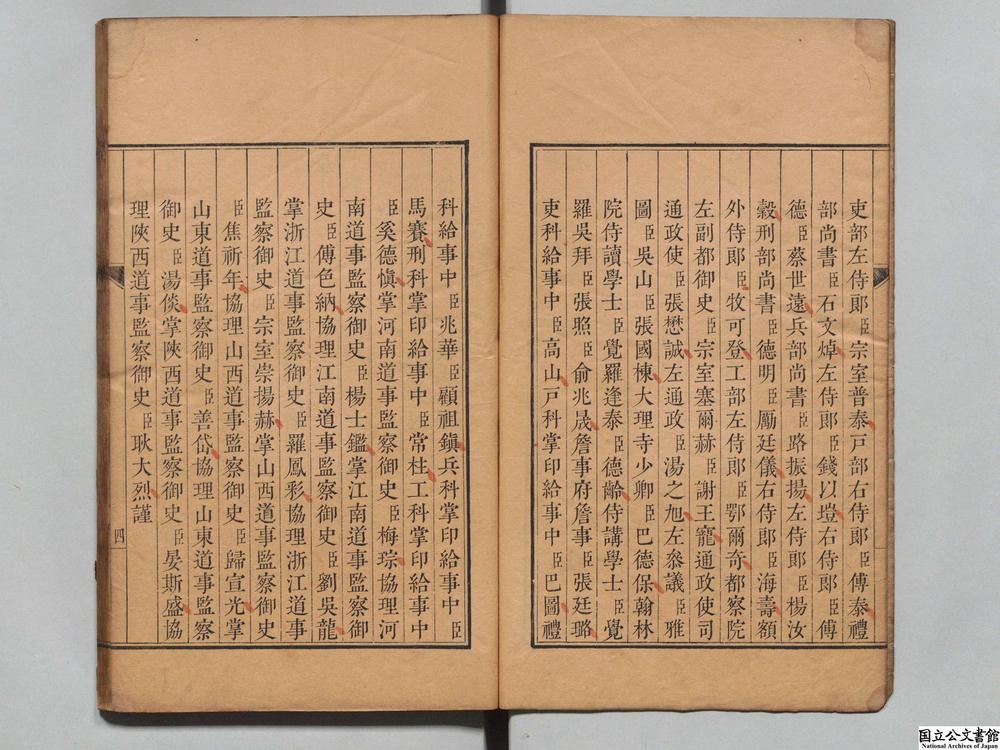 吏部左侍郎臣宗室普泰戸部右侍郎臣傅泰禮
部尚書臣石文焯左侍郎臣錢以塏右侍郎臣傅
德臣蔡世遠兵部尚書臣路振揚左侍郎臣楊汝
穀刑部尚書臣德明臣勵廷儀右侍郎臣海壽額
外侍郎臣牧可登工部左侍郎臣鄂爾奇都察院
左副都御史臣宗室塞爾赫臣謝王寵通政使司
通政使臣張懋誠左通政臣湯之旭左叅議臣雅
圖臣吳山臣張國棟大理寺少卿臣巴德保翰林
院侍讀學士臣覺羅逢泰臣德齡侍講學士臣覺
羅吳拜臣張照臣俞兆晟詹事府詹事臣張廷璐
吏科給事中臣高山戸科掌印給事中臣巴圖禮
科給事中臣兆華臣顧祖鎮兵科掌印給事中臣
馬賽刑科掌印給事中臣常柱工科掌印給事中
臣奚德慎掌河南道事監察御史臣梅琮協理河
南道事監察御史臣楊士鑑掌江南道事監察御
史臣傅色納協理江南道事監察御史臣劉吳龍
掌浙江道事監察御史臣羅鳳彩協理浙江道事
監察御史臣宗室崇揚赫掌山西道事監察御史
臣焦祈年協理山西道事監察御史臣歸宣光掌
山東道事監察御史臣善岱協理山東道事監察
御史臣湯倓掌陝西道事監察御史臣晏斯盛協
理陝西道事監察御史臣耿大烈謹
四
国立公文書館
National Archives of Japan